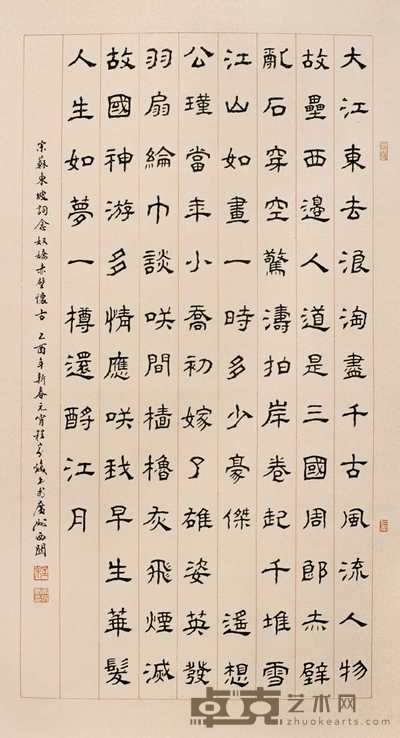 大江東去浪淘盡千古風流人物
故壘西邊人道是三國周郎赤壁
亂石穿空驚濤拍岸卷起千堆雪
江山如畫一時多少豪傑 遙想
公瑾當年小喬初嫁了雄姿英發
羽扇綸巾談咲間檣櫓灰飛煙滅
故國神游多情應咲我早生華髮
人生如夢一樽還酹江月
宋蘇東坡詞念奴嬌赤壁懷古 乙酉年新春元宵程 於廣州西關
卓克艺术网
zhuokearts.com